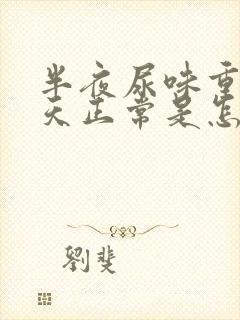 半夜尿味重
天正常是怎
劉斐